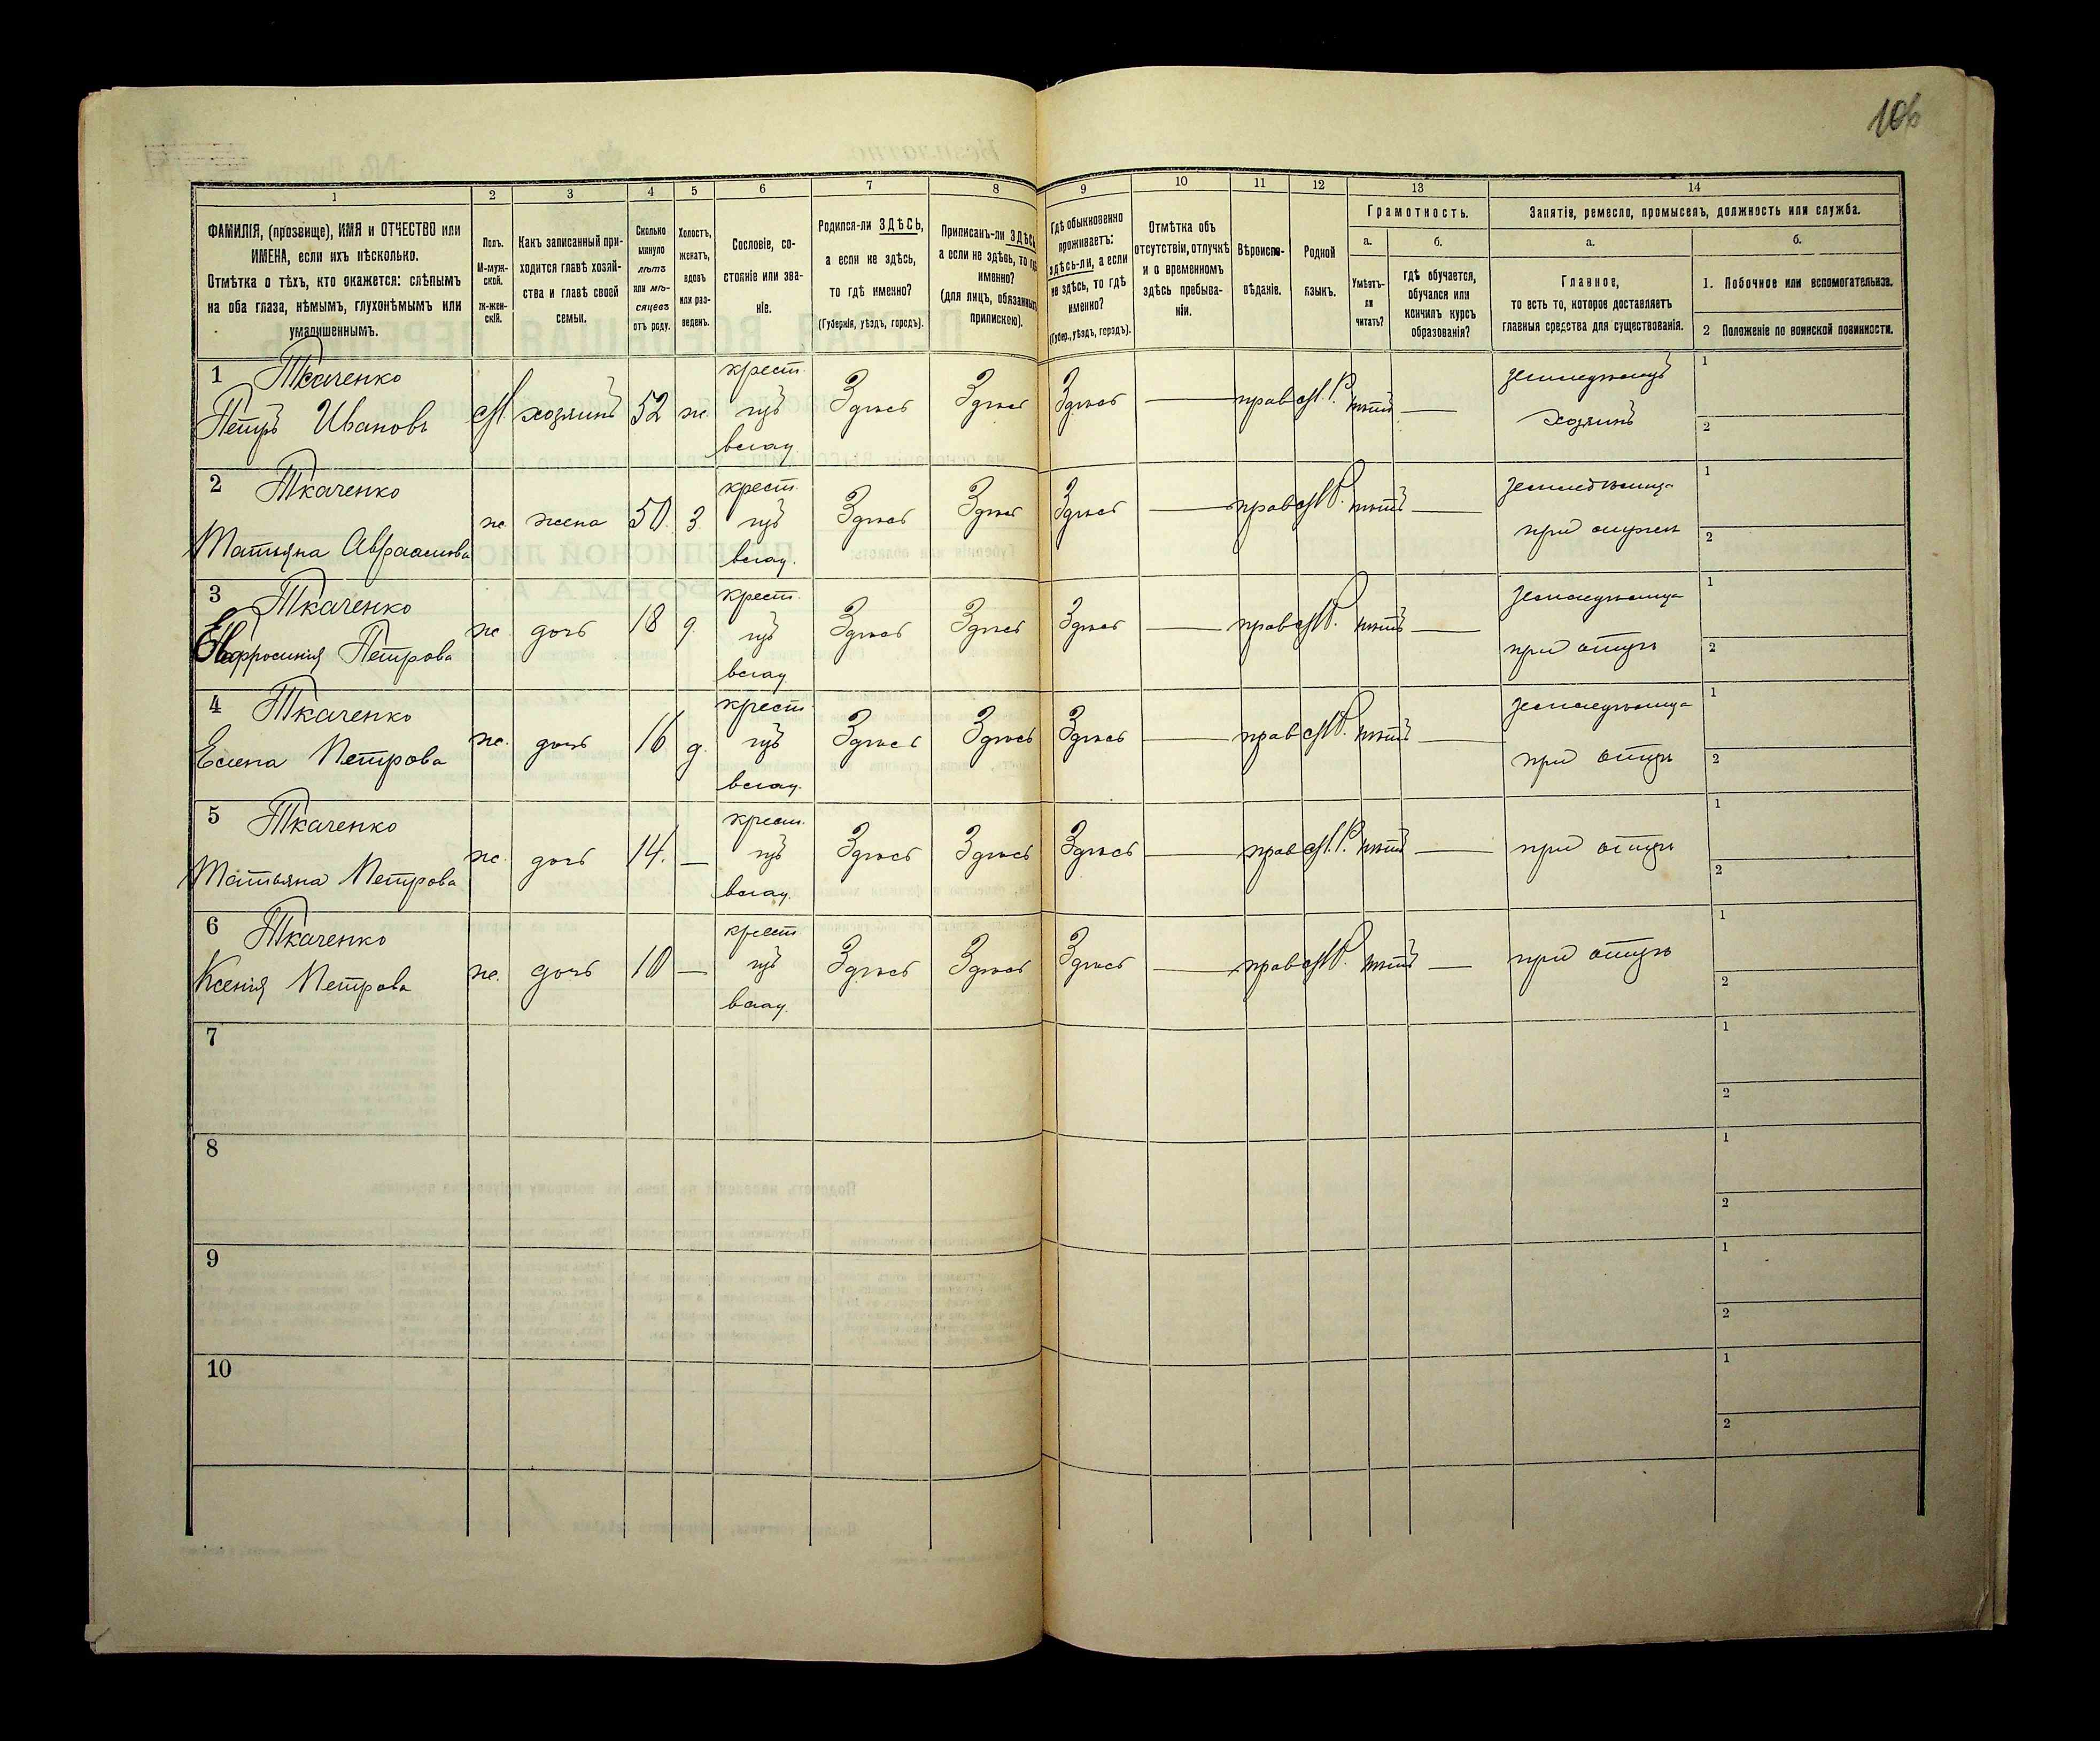 106
1 2 3 4 5 6 7 8 9 10 11 12 13 14
ФАМИЛІЯ, (прозвище), ИМЯ и ОТЧЕСТВО или
ИМЕНА, если ихъ нѣсколько.
Отмѣтка о тѣхъ, кто окажется: слѣпымъ
на оба глаза, нѣмымъ, глухонѣмымъ или
умалишеннымъ.
Полъ.
М-муж-
ской.
ж-жен-
скій.
Какъ записанный при-
ходится главѣ хозяй-
ства и главѣ своей
семьи.
Сколько
минуло
лѣтъ
или мѣ-
сяцевъ
отъ роду.
Холостъ,
женатъ,
вдовъ
или раз-
веденъ.
Сословіе, со-
стояніе или зва-
ніе.
Родился-ли ЗДѢСЬ,
а если не здѣсь,
то гдѣ именно?
(Губернія, уѣздъ, городъ).
Приписанъ-ли ЗДѢСЬ
а если не здѣсь, то гдѣ
именно?
(для лицъ, обязанныхъ
припискою).
Гдѣ обыкновенно
проживаетъ:
здѣсь-ли, а если
не здѣсь, то гдѣ
именно?
(Губер., уѣздъ, городъ).
Отмѣтка объ
отсутствіи, отлучкѣ
и о временномъ
здѣсь пребыва-
ніи.
Вѣроиспо-
вѣданіе.
Родной
языкъ.
Грамотность.
а.
Умѣетъ-
ли
читать?
б.
гдѣ обучается,
обучался или
кончилъ курсъ
образованія?
Занятія, ремесло, промыселъ, должность или служба.
а.
Главное,
то есть то, которое доставляетъ
главныя средства для существованія.
б.
1. Побочное или вспомогательное.
2 Положеніе по воинской повинности.
1 Ткаченко крест. земледѣлецъ 1
Петръ Ивановъ М. хозяинъ 52 ж. изъ Здѣсь Здѣсь Здѣсь — прав М.Р. нѣтъ — хозяинъ
влад. 2
2 Ткаченко крест. земледѣлица 1
Татьяна Авраамова ж. жена 50. З. изъ Здѣсь Здѣсь Здѣсь — прав М.Р. нѣтъ — при мужѣ
влад. 2
3 Ткаченко крест. земледѣлица 1
Евфросинія Петрова ж. дочь 18 д. изъ Здѣсь Здѣсь Здѣсь — прав М.Р. нѣтъ — при отцѣ
влад. 2
4 Ткаченко крест. земледѣлица 1
Елена Петрова ж. дочь 16 д. изъ Здѣсь Здѣсь Здѣсь — прав М.Р. нѣтъ — при отцѣ
влад. 2
5 Ткаченко крест. 1
Татьяна Петрова ж. дочь 14. — изъ Здѣсь Здѣсь Здѣсь — прав М.Р. нѣтъ — при отцѣ
влад. 2
6 Ткаченко крест. 1
Ксенія Петрова ж. дочь 10 — изъ Здѣсь Здѣсь Здѣсь — прав М.Р. нѣтъ — при отцѣ
влад. 2
7 1
2
8 1
2
9 1
2
10 1
2